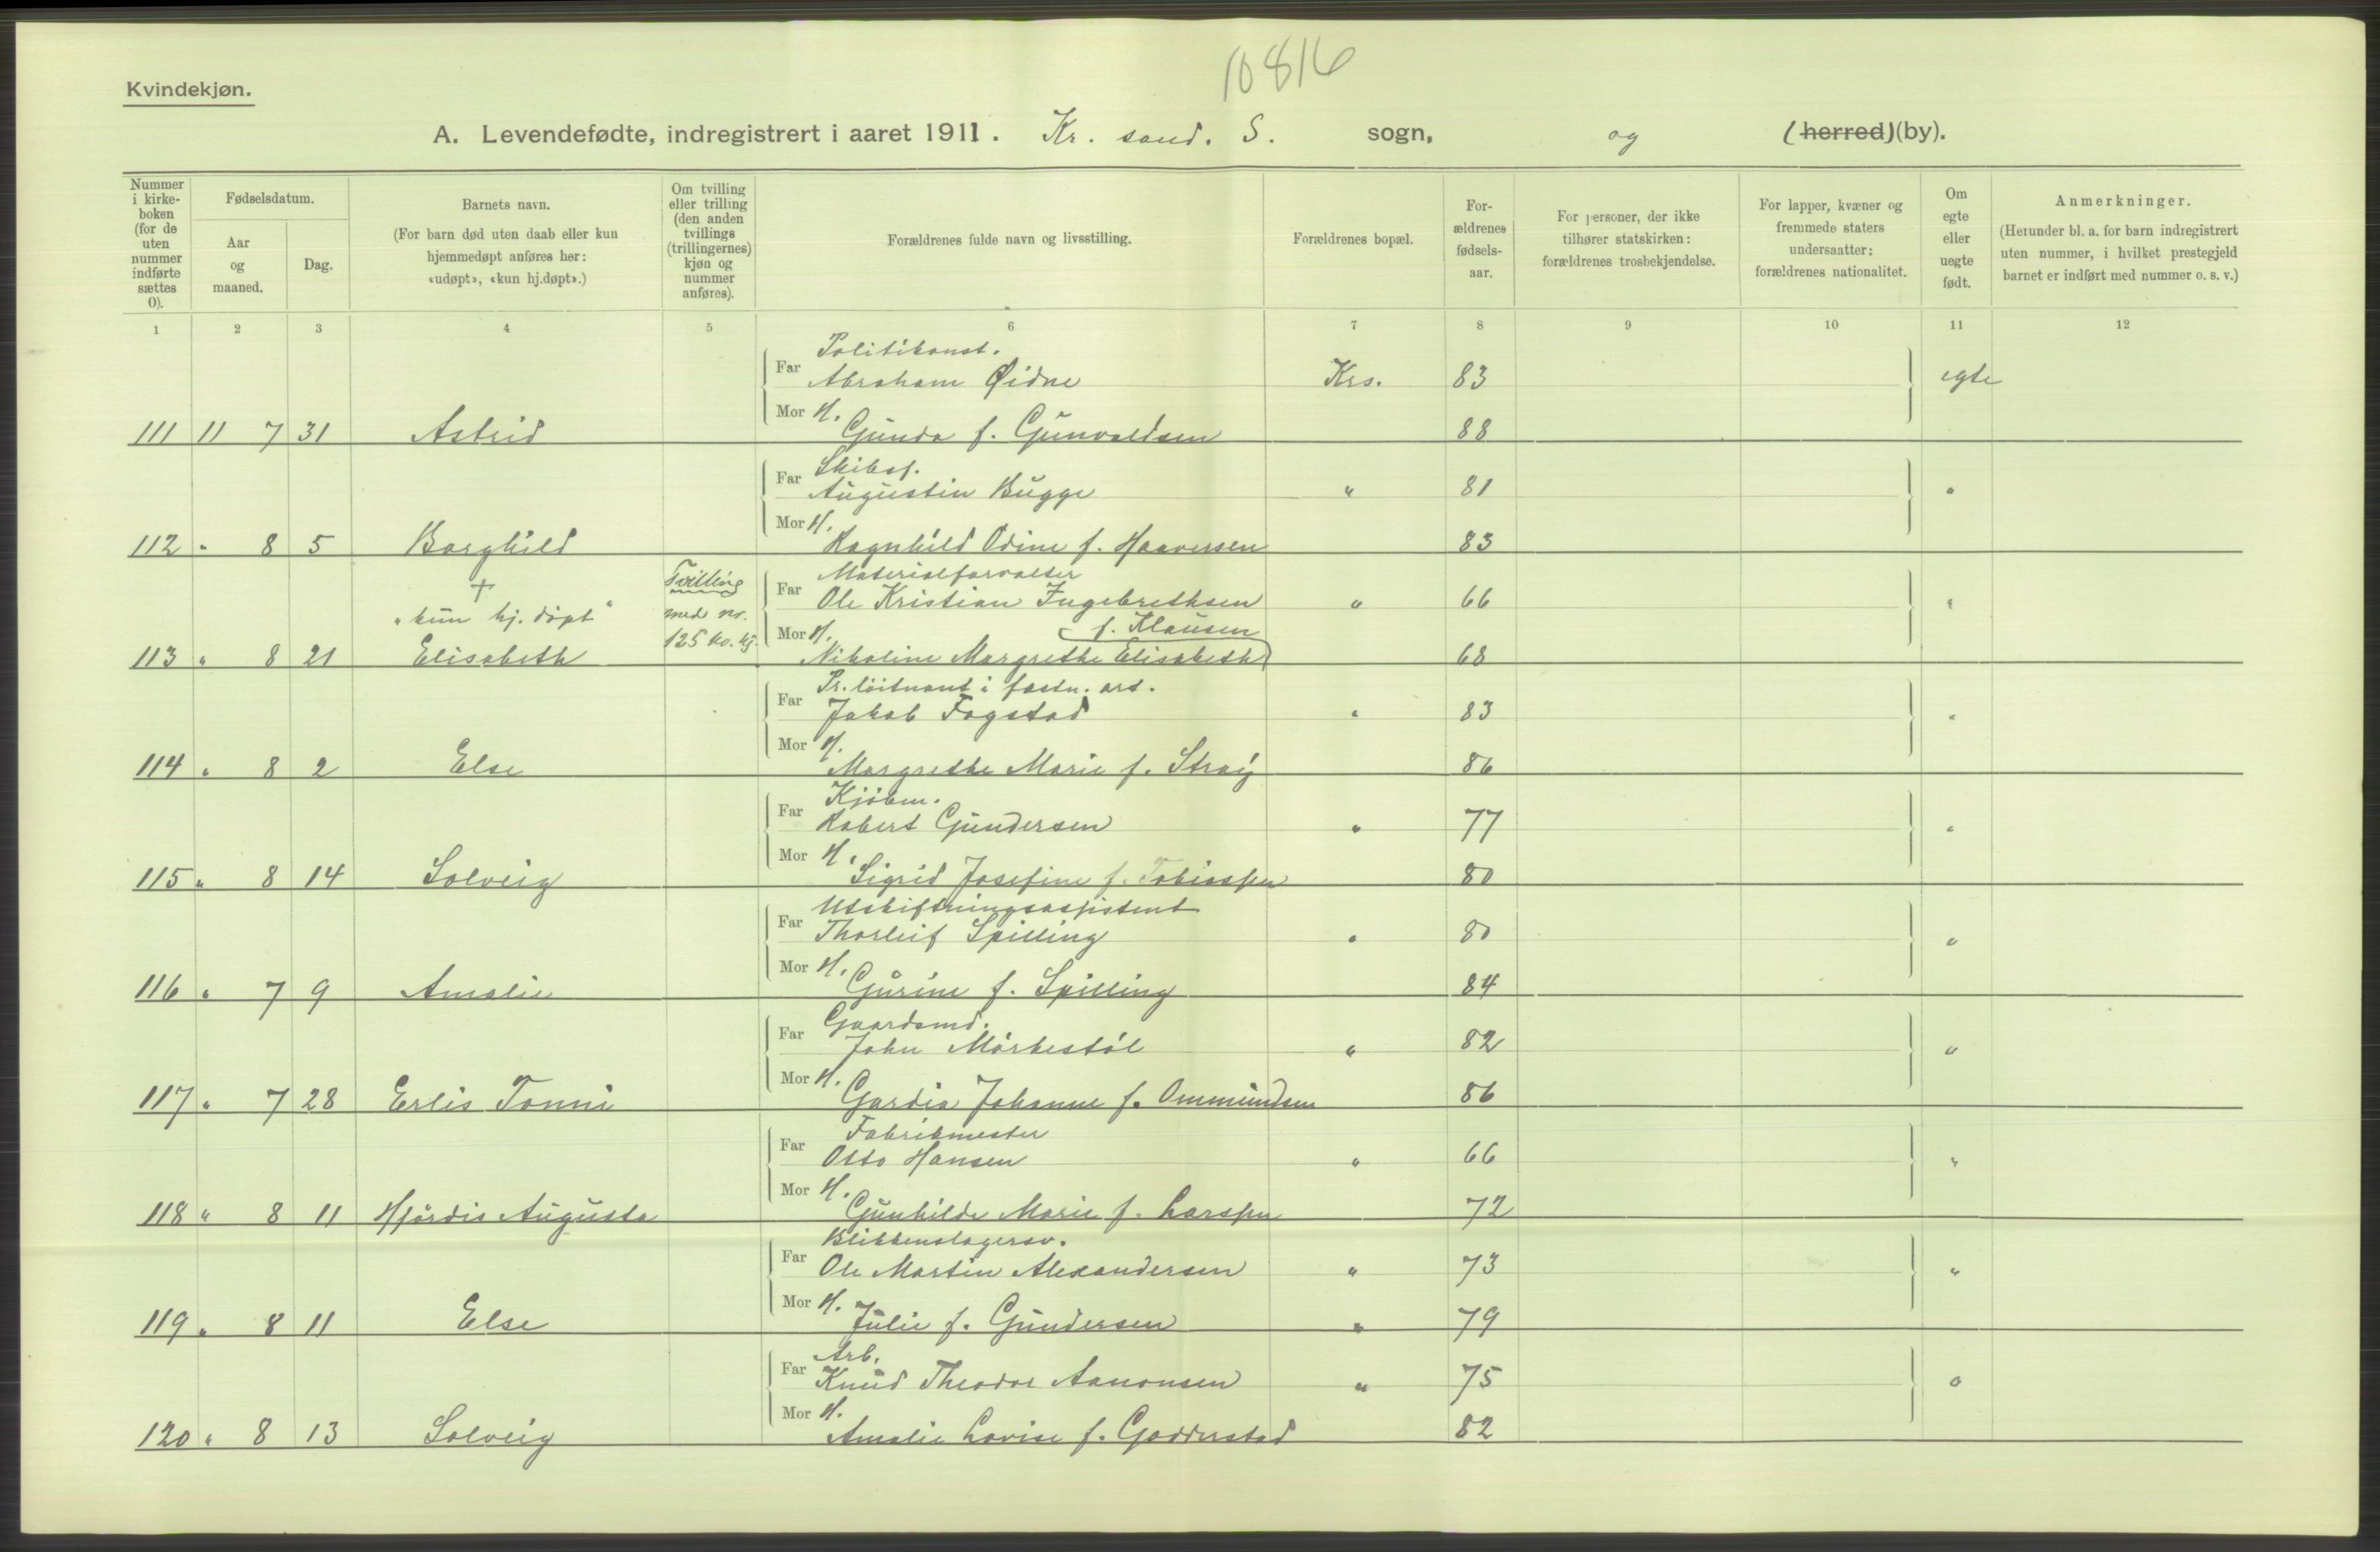 10816
Kvindekjøn.
A. Levendefødte, indregistrert i aaret 1911. Kr. sand. S. sogn, og (herred)(by).
Nummer i kirke-boken (for de uten nummer indførte sættes 0).
Fødselsdatum.
Aar og maaned.
Dag.
Barnets navn.
(For barn død uten daab eller kun hjemmedøpt anføres her: «udøpt», «kun hj.døpt».)
Om tvilling eller trilling (den anden tvillings (trillingernes) kjøn og nummer anføres).
Forældrenes fulde navn og livsstilling.
Forældrenes bopæl.
For-ældrenes fødsels-aar.
For personer, der ikke tilhører statskirken: forældrenes trosbekjendelse.
For lapper, kvæner og fremmede staters undersaatter: forældrenes nationalitet.
Om egte eller uegte født.
Anmerkninger.
(Herunder bl. a. for barn indregistrert uten nummer, i hvilket prestegjeld barnet er indført med nummer o. s. v.)
1 2 3 4 5 6 7 8 9 10 11 12
Politikonst.
Far Abraham Øidne Krs. 83 egte
Mor H.
111 11 7 31 Astrid Gunda f. Gunvaldsen 88
Skibsf.
Far Augustin Bugge " 81 "
Mor H.
112 " 8 5 Borghild Ragnhild Odine f. Haaversen 83
+ Tvilling Materialforvalter
"kun hj. døpt" med nr. Far Ole Kristian Ingebrethsen " 66 "
125 ko. kj. Mor H. f. Klausen
113 " 8 21 Elisabeth Nikoline Margrethe Elisabeth 68
Pr. løitnant i fastn. art.
Far Jakob Fogstad " 83 "
Mor H.
114 " 8 2 Else Margrethe Marie f. Straij 86
Kjøbm.
Far Robert Gundersen " 77 "
Mor H.
115 " 8 14 Solveig Sigrid Josefine f. Tobiassen 80
Utskiftningsassistent
Far Thorleif Spilling " 80 "
Mor H.
116 " 7 9 Amalie Gurine f. Spilling 84
Gaardsmd.
Far John Mörkestöl " 82 "
Mor H.
117 " 7 28 Erlis Tonni Gardia Johanne f. Ommundsen 86
Fabrikmester
Far Otto Hansen " 66 "
Mor H.
118 " 8 11 Hjördis Augusta Gunhilde Marie f. Larssen 72
Blikkenslagersv.
Far Ole Martin Alexandersen " 73 "
Mor H.
119 " 8 11 Else Julie f. Gundersen " 79
Arb.
Far Knud Theodor Aanonsen " 75 "
Mor H.
120 " 8 13 Solveig Amalie Lovise f. Godderstad 82